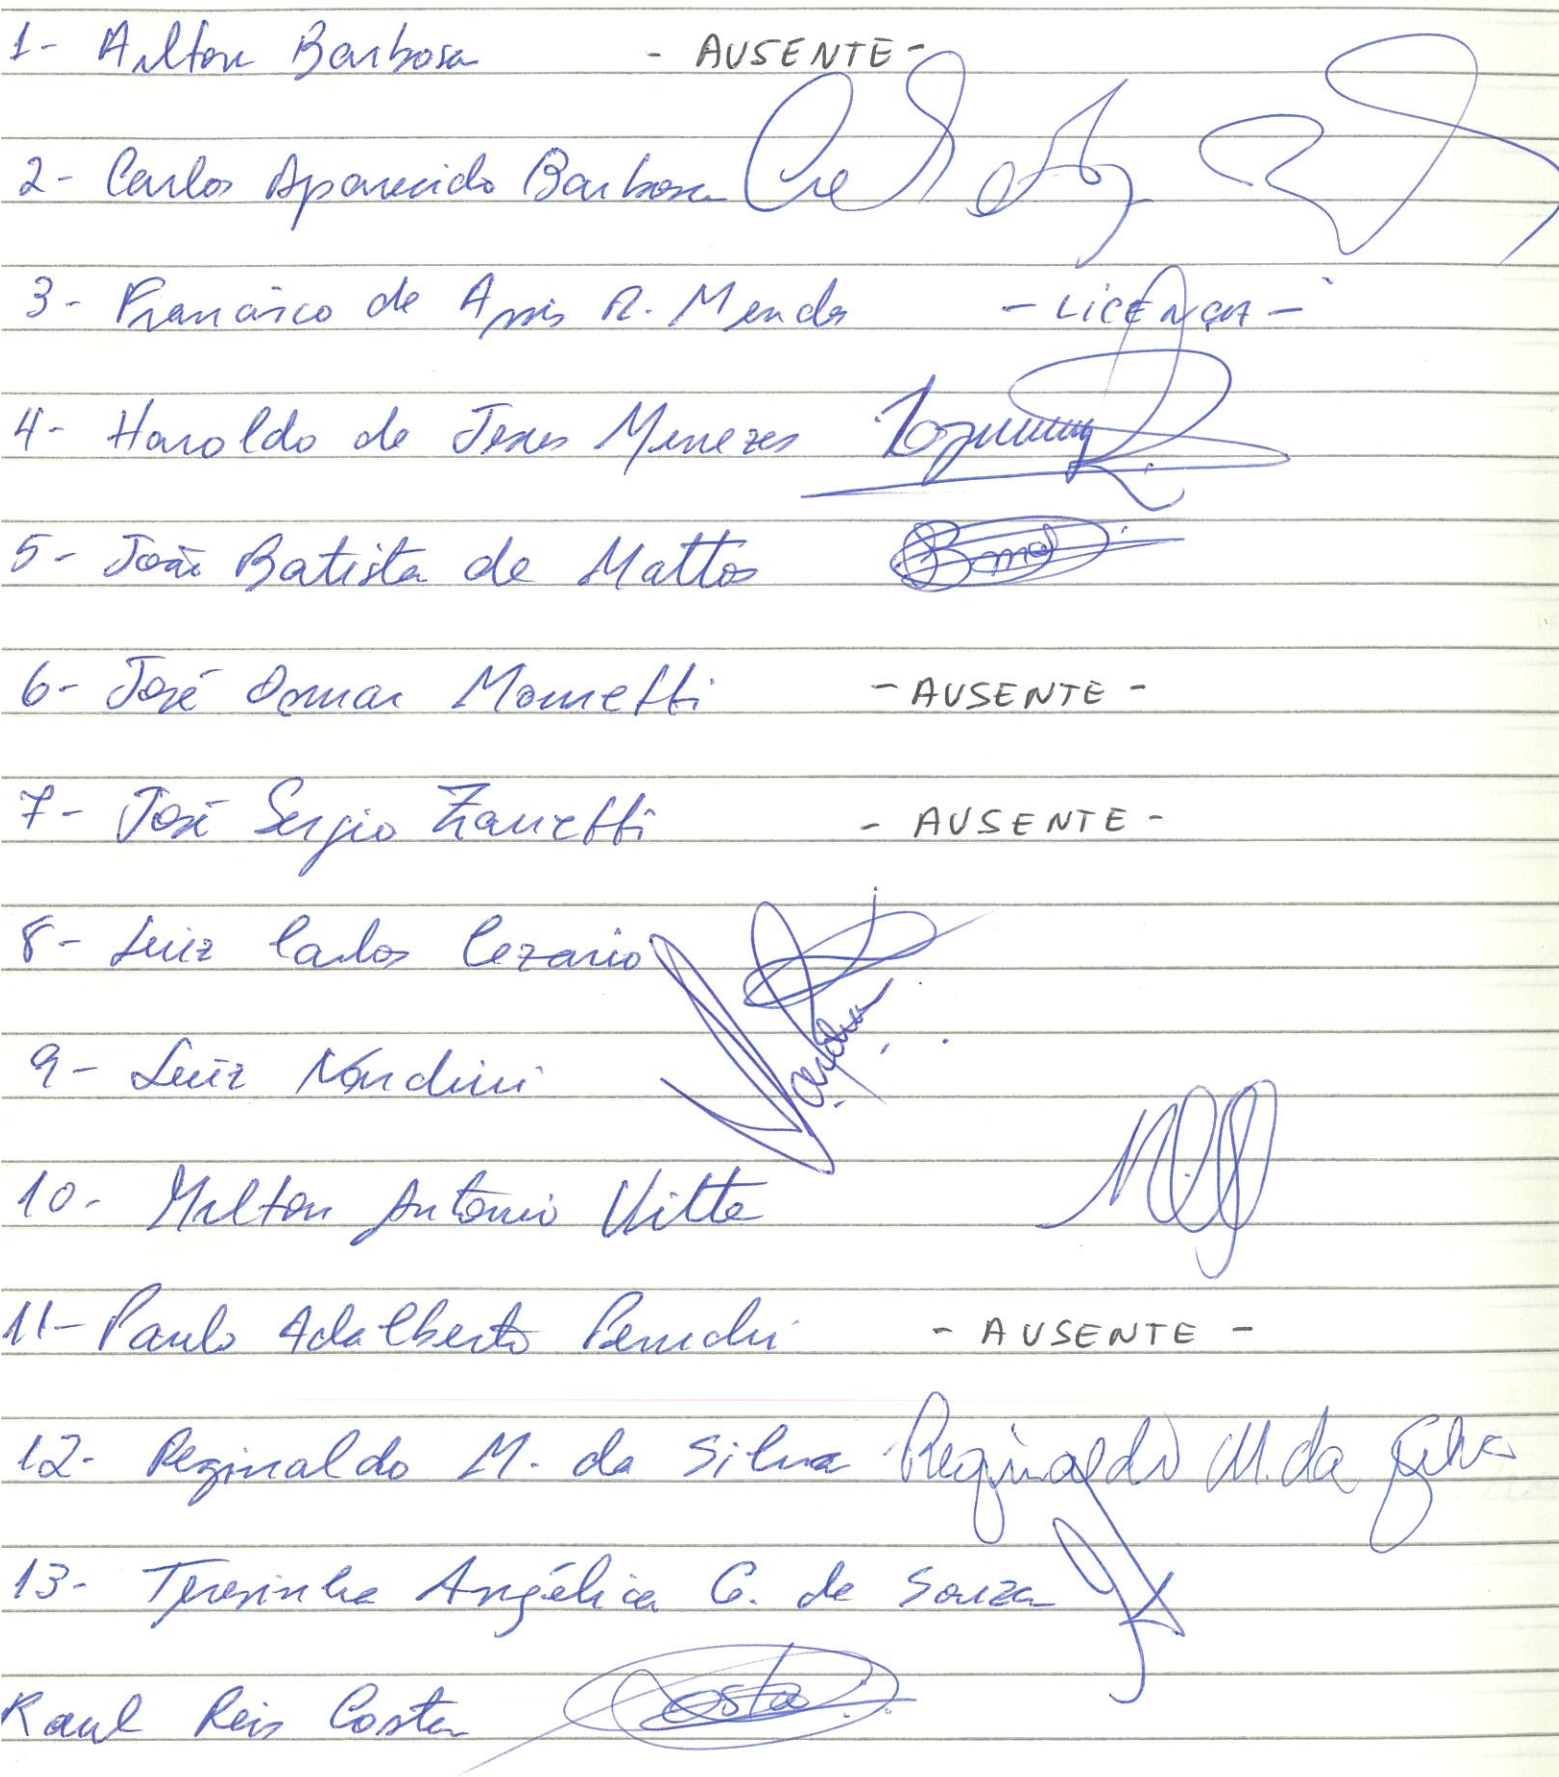 1- Ailton Barbosa - AUSENTE -
2- Carlos Aparecido Barbosa
3- Francisco de Assis R. Mendes - LICENÇA -
4- Haroldo de Jesus Menezes
5- João Batista de Mattos
6- José Osmar Mometti - AUSENTE -
7- José Sergio Zanetti - AUSENTE -
8- Luiz Carlos Cezario
9- Luiz Nardini
10- Milton Antonio Vitte
11- Paulo Adalberto - AUSENTE -
12- Reginaldo M. da Silva Reginaldo M. da Silva
13- Teresinha Angélica G. de Souza
Raul Reis Costa Costa